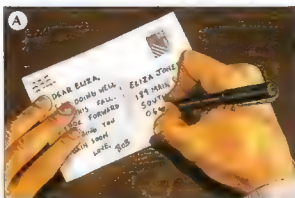 A
DEAR ELIZA,
DOING WELL
THIS FALL.
FORWARD
YOU
SOON
LOVE, BOB
ELIZA JONES
189 MAIN
SOUTH